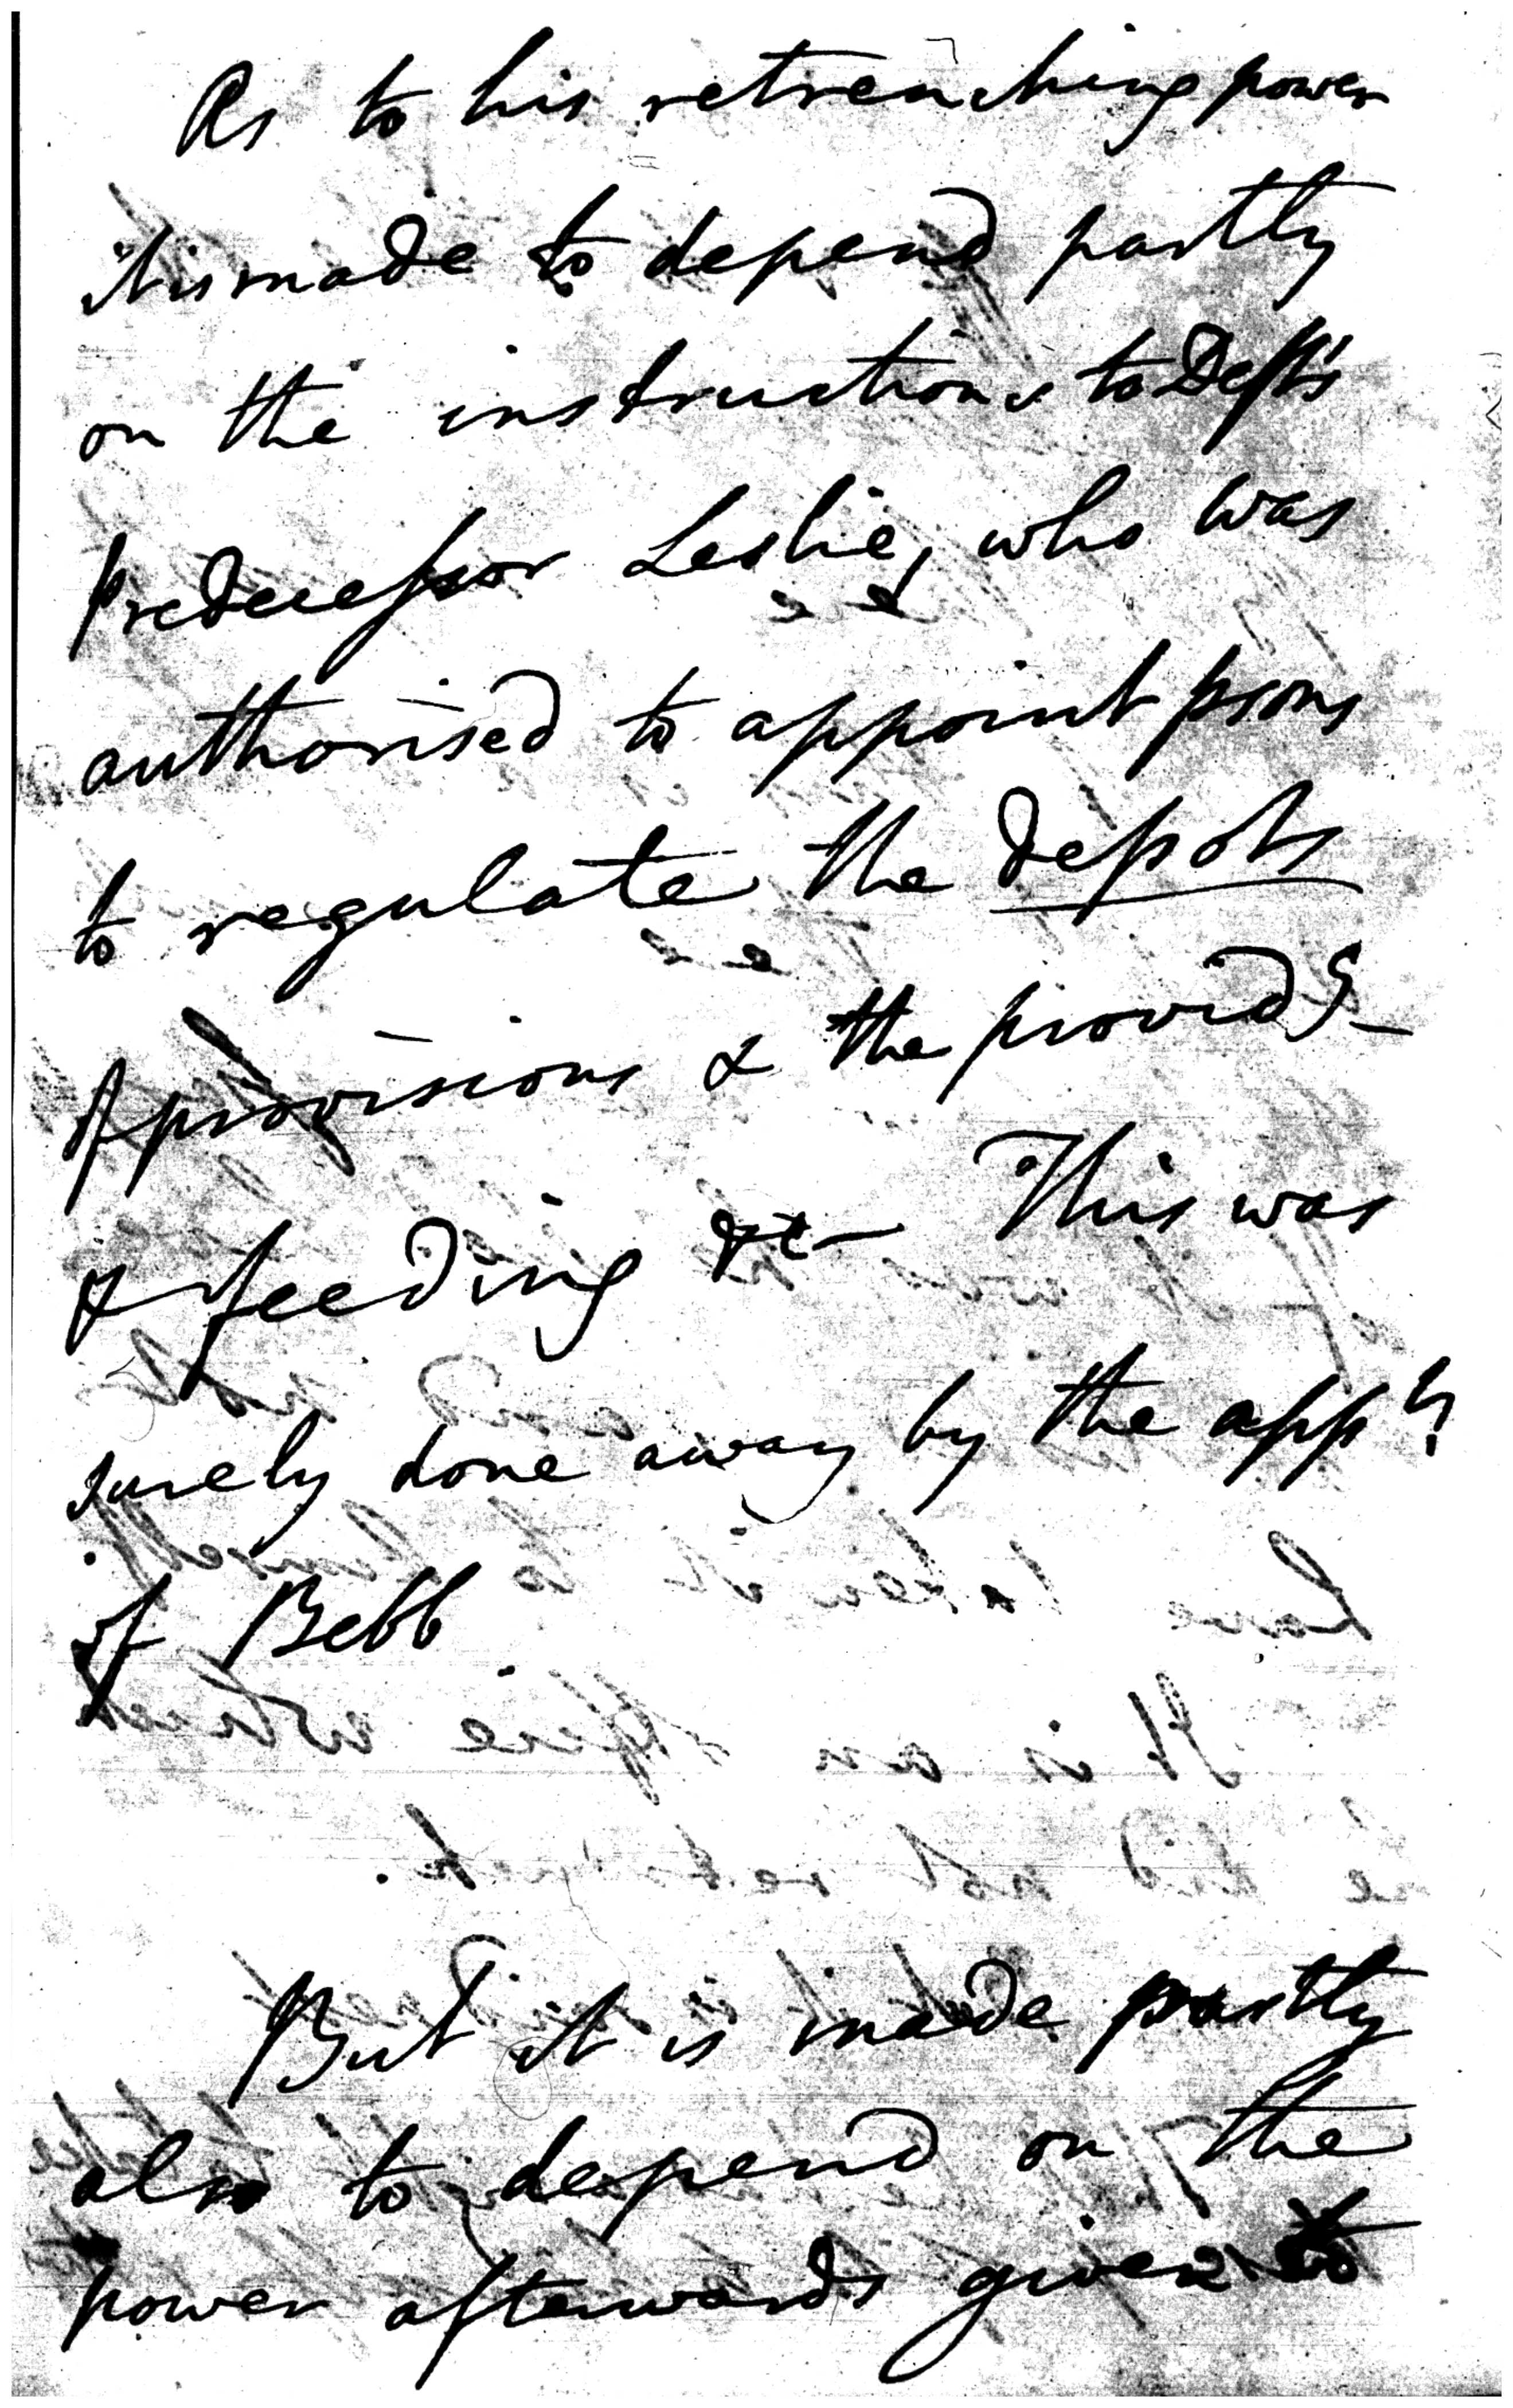 As to his retrenching power
it is made to depend partly
on the instructions to Deft's
Predecessor Leslie, who was
authorised to appoint psons
to regulate the depots
of provisions & the provid^g
& feeding &c— This was
surely done away by the app^t
of Bebb
But it is made partly
also to depend on the
power afterwards given to